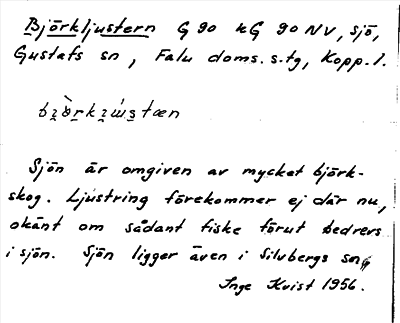 Björkljustern G 90 kG 90 NV, sjö,
Gustafs sn, Falu doms. s.tg, Kopp. l.
Sjön är omgiven av mycket björk-
skog. Ljustring förekommer ej där nu,
okänt om sådant fiske förut bedrevs
i sjön. Sjön ligger även i Silvbergs sn
Inge Kvist 1956.